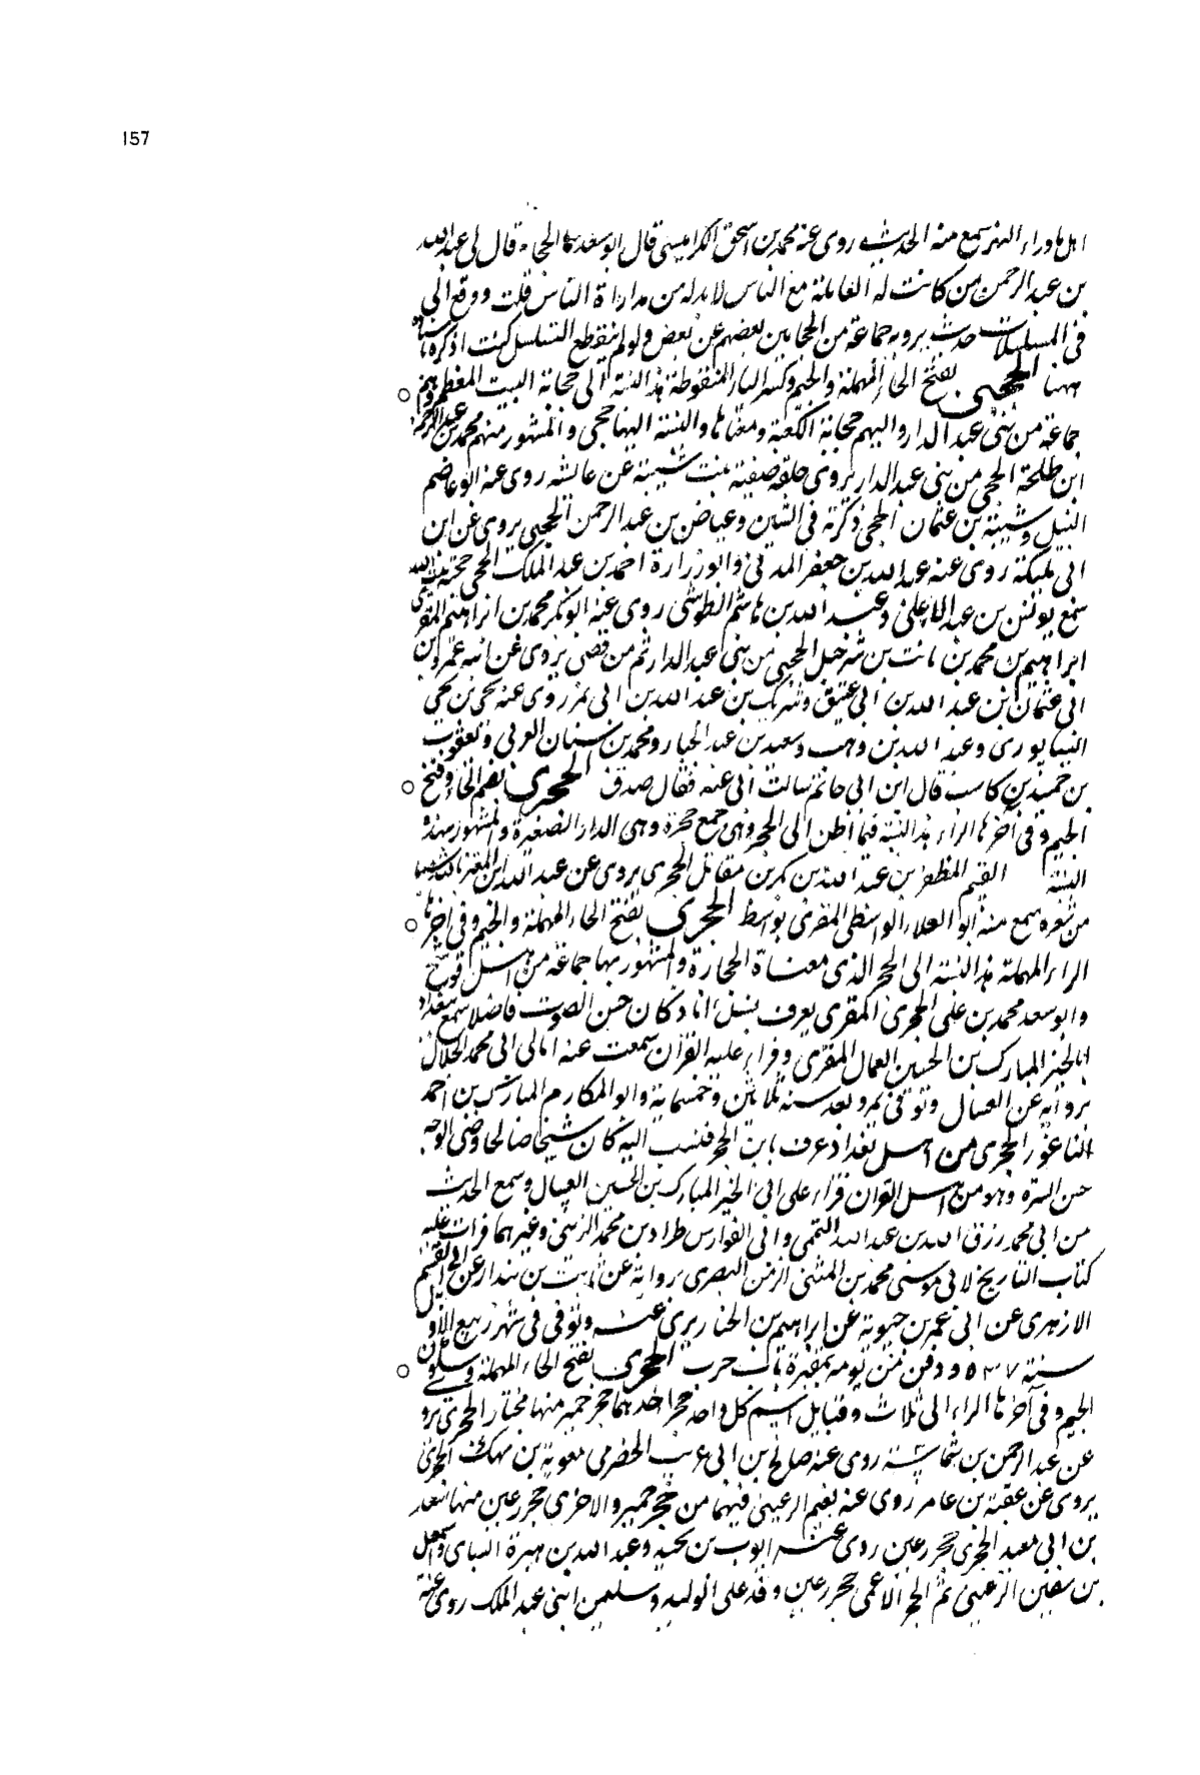 157
اهل ماوراء النهر سمع منه الحديث روى عنه محمد بن اسحق الكرابيسى قال ابو سعد قال لى عبد الله
بن عبد الرحمن من كانت له العائلة مع الناس لا بد له من مداراة الناس قلت ووقع الى
فى المسلسلات حديث يرويه جماعة من الحجابين بعضهم عن بعض ولو لم ينقطع التسلسل كنت اذكره
ههنا الحجبى بفتح الحاء المهملة والجيم وكسر الباء المنقوطة هذه النسبة الى حجابة البيت المعظم وهم
جماعة من بنى عبد الدار واليهم حجابة الكعبة ومفتاحها والنسبة اليها حجبى والمشهور منهم محمد بن عبد الرحمن
ابن طلحة الحجبى من بنى عبد الدار يروى عن صفية بنت شيبة عن عائشة روى عنه ابو عاصم
النبيل وشيبة بن عثمان الحجبى ذكرته فى الشين وعياض بن عبد الرحمن الحجبى يروى عن ابن
ابى مليكة روى عنه عبد الله بن جعفر المدنى وابو زرارة احمد بن عبد الملك الحجبى
سمع يونس بن عبد الاعلى وعبد الله بن هاشم الطوسى روى عنه ابو بكر محمد بن ابراهيم المقرى
ابراهيم بن محمد بن ثابت بن شرحبيل الحجبى من بنى عبد الدار ثم من قصى يروى عن ابيه عمرو بن
ابى عثمان بن عبد الله بن ابى عتيق وشريك بن عبد الله بن ابى نمر روى عنه يحيى بن يحيى
النيسابورى وعبد الله بن وهب وسعيد بن عبد الجبار ومحمد بن سنان العوقى ويعقوب
بن حميد بن كاسب قال ابن ابى حاتم سالت ابى عنه فقال صدوق الحجرى بضم الحاء وفتح
الجيم وفى آخرها الراء هذه النسبة فيما اظن الى الحجر وهى جمع حجرة وهى الدار الصغيرة والمشهور بهذه
النسبة القيم المظفر بن عبد الله بن بكر بن مقاتل الحجرى يروى عن عبد الله ابن المعتز
من شعره سمع منه ابو العلاء الواسطى المقرى بواسط الحجرى بفتح الحاء المهملة والجيم وفى اخرها
الراء المهملة هذه النسبة الى الحجر الذى معناه الحجارة والمشهور بها جماعة من اهل
وابو سعد محمد بن على الحجرى المقرى يعرف كان حسن الصوت فاضلا سمع ببغداد
ابا الخير المبارك بن الحسين العسال المقرى وقرا عليه القران سمعت عنه امالى ابى محمد الخلال
بروايته عن العسال وتوفى بمرو بعد سنة ثلاثين وخمسماية وابو المكارم المبارك بن احمد
الحجرى من اهل بغداد عرف بابن الحجر فنسب اليه كان شيخا صالحا وضى الوجه
حسن السيرة وهو من اهل القران قرا على ابى الخير المبارك بن الحسين العسال وسمع الحديث
من ابى محمد رزق الله بن عبد الله التميمى وابى الفوارس طراد بن محمد الزينبى وغيرهما قرات عليه
كتاب التاريخ لابى موسى محمد بن المثنى الزمن البصرى بروايته عن ثابت بن بندار عن ابى القسم
الازهرى عن ابى عمر بن حيوية عن ابراهيم بن عنه وتوفى فى شهر ربيع الاول
سنة ٥٣٧ ودفن من يومه بمقبرة باب حرب الحجرى بفتح الحاء المهملة وسكون
الجيم وفى آخرها الراء الى ثلاث قبايل اسم كل واحد حجر احدهما حجر حمير منها مختار الحجرى يروى
عن عبد الرحمن بن شماسة روى عنه صالح بن ابى عريب الحضرمى معوية بن نهيك الحجرى
يروى عن عقبة بن عامر روى عنه نعيم الرعينى فيهما من حجر حمير والاخرى حجر رعين منها سعيد
بن ابى سعيد الحجرى حجر رعين روى عنه ايوب بن بجيد وعبد الله بن هبيرة السباى واسمعيل
بن سفين الرعينى ثم الحجرى الاعمى حجر رعين وفد على الوليد وسليمن ابنى عبد الملك روى عنه